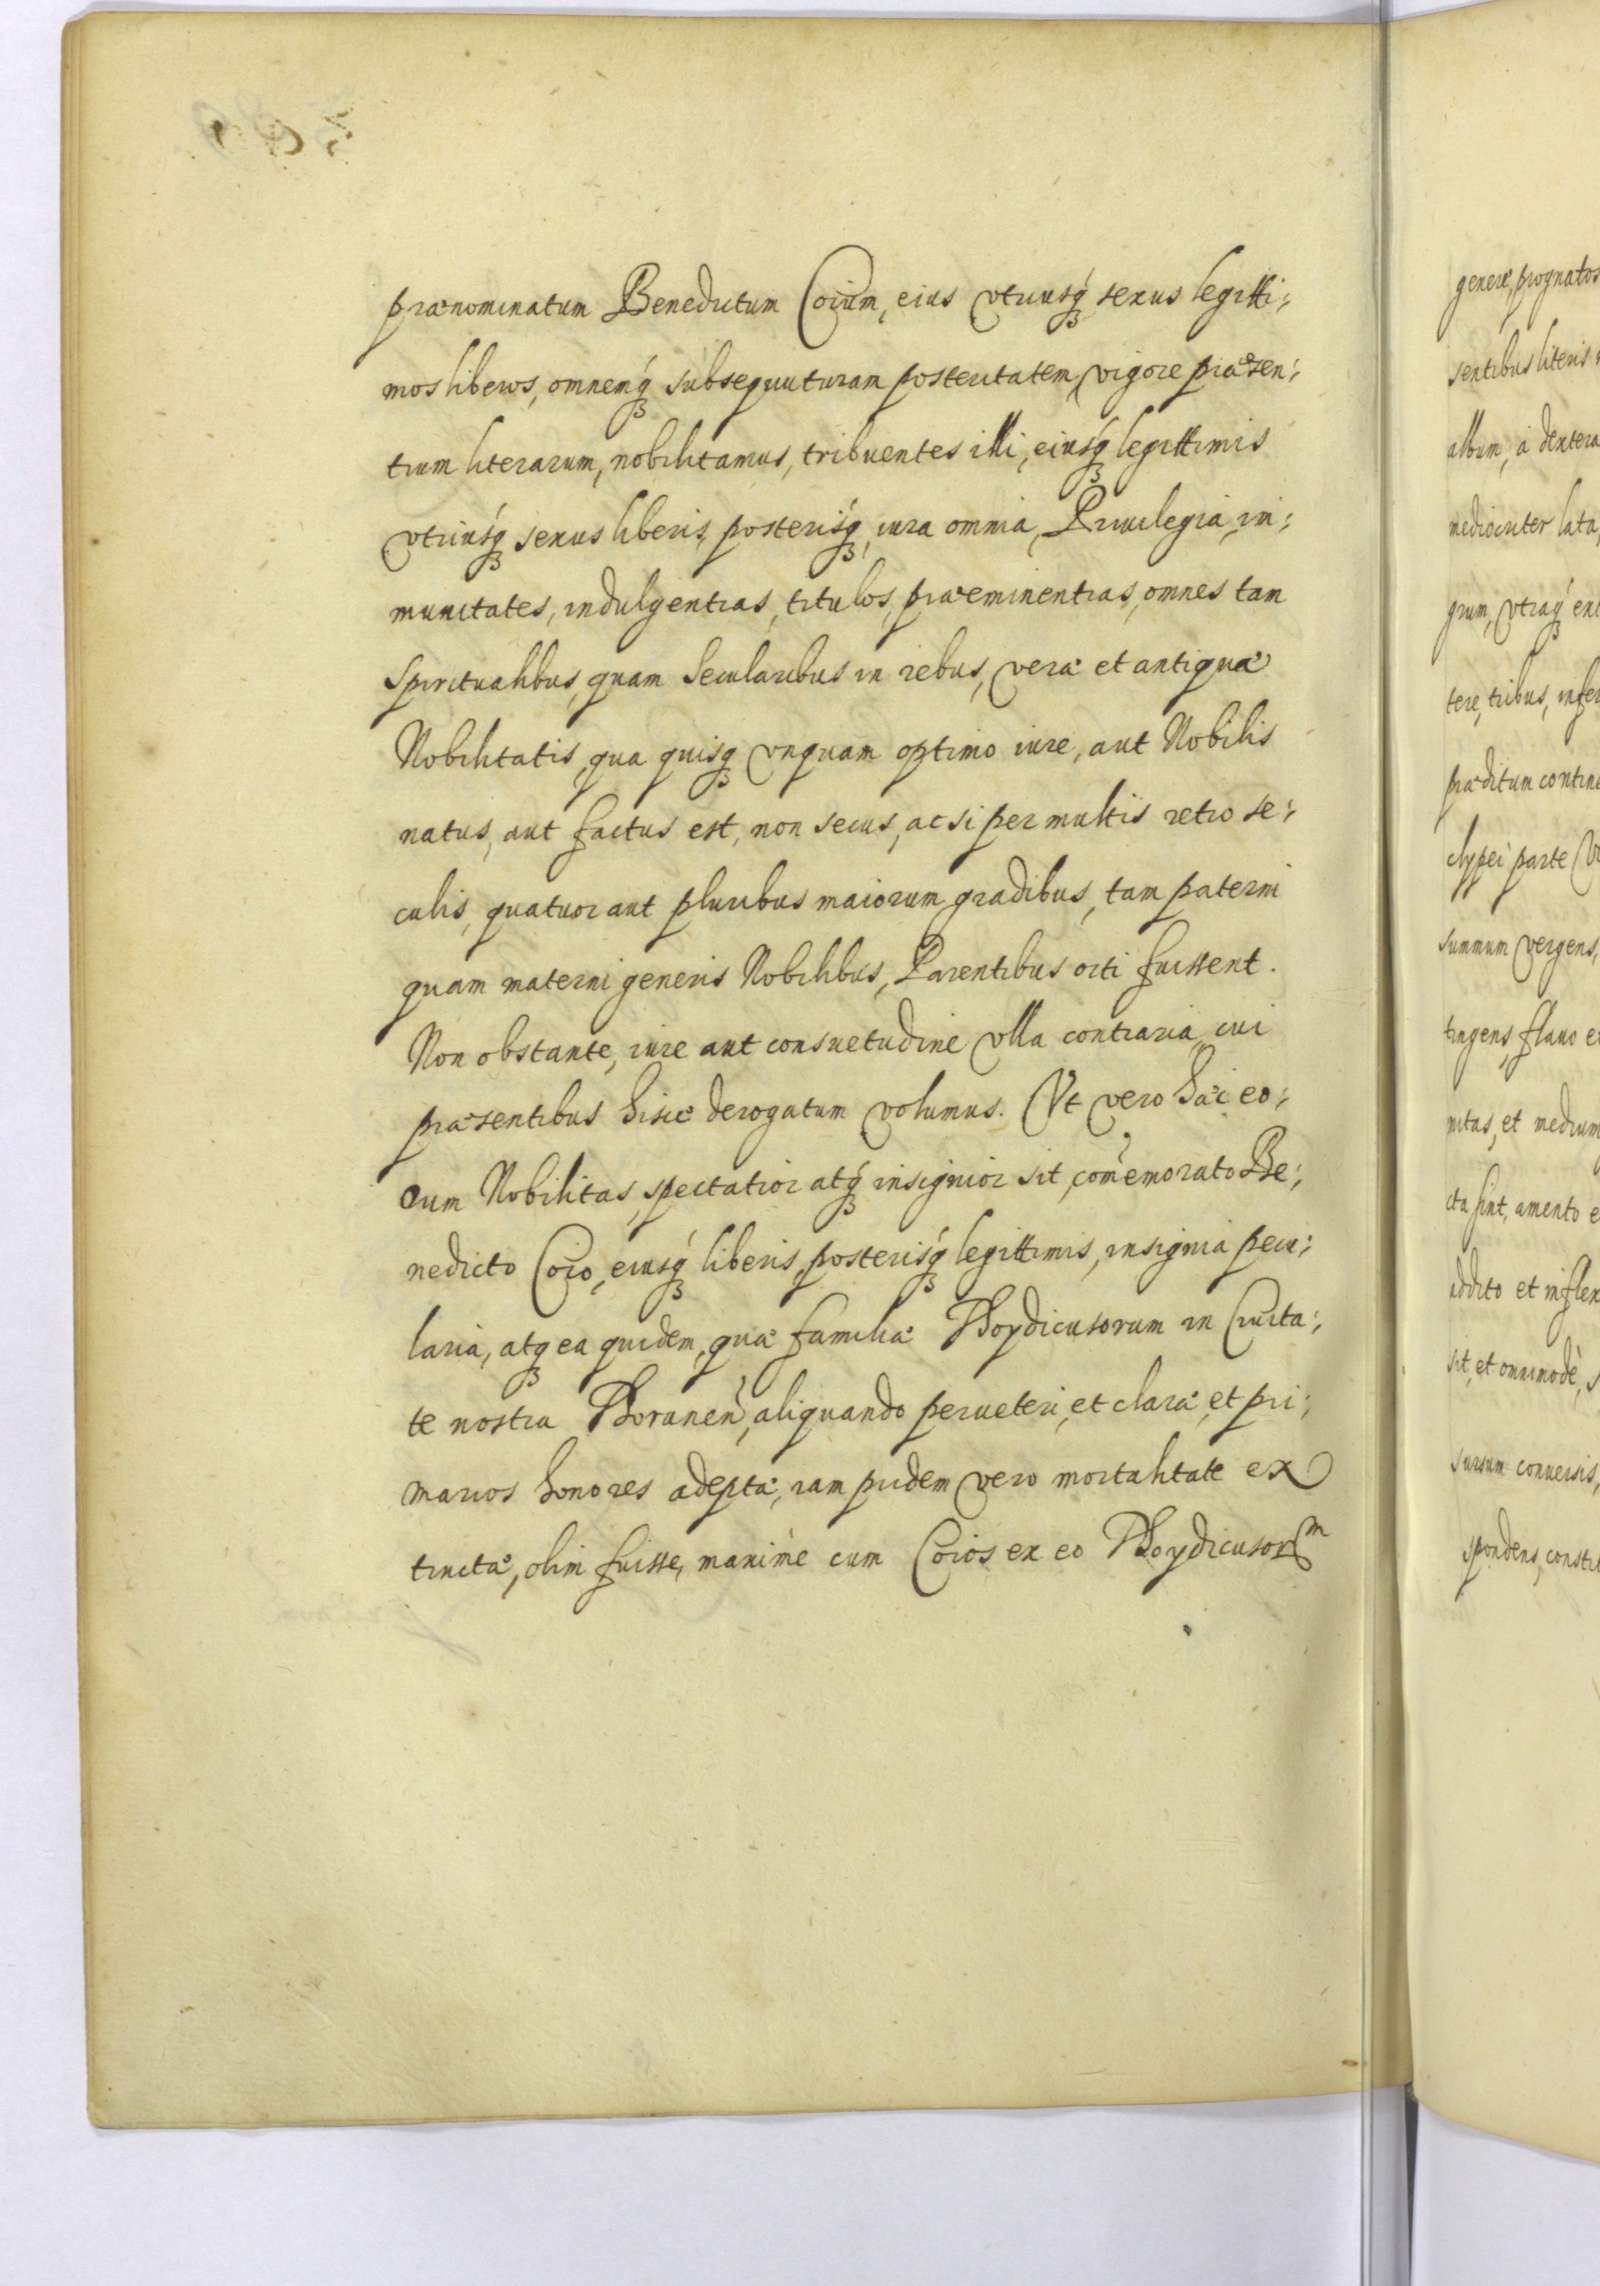 prænominatum Benedictum Coium, eius vtriusq́ꝫ sexus legitti:
mos liberos, omnemq́ꝫ subsequuturam posteritatem, vigore præsen:
tium literarum, nobilitamus, tribuentes illi, eiusq́ꝫ legittimis
vtriusq́ꝫ sexus liberis, posterisq́ꝫ, iura omnia, Priuilegia, im:
munitates, indulgentias, titulos, præeminentias, omnes tam
Spiritualibus, quam Secularibus in rebus, veræ et antiquæ
Nobilitatis, qua quisqꝫ vnquam optimo iure, aut Nobilis
natus, aut factus est, non secus, ac si per multis retro se:
culis, quatuor aut pluribus maiorum gradibus, tam paterni
quam materni generis Nobilibus, Parentibus orti fuissent.
Non obstante, iure aut consuetudine vlla contraria, cui
præsentibus hisce derogatum volumus. Vt vero hæc eo:
rum Nobilitas, spectatior atq́ꝫ insignior sit, com̃emorato Be:
nedicto Coio, eiusq́ꝫ liberis, posterisq́ꝫ legittimis, insignia pecu:
laria, atqꝫ ea quidem, quæ familiæ Thoydicusorum in Ciuita:
te nostra Thoranen̄, aliquando perueteri, et claræ, et pri:
marios honores adeptæ, iam pridem vero mortalitate ex
tinctæ, olim fuisse, maxime cum Coios ex eo Thoydicusorᵐ
genere, prognatos
sentibus literis
album, à dextera
mediocriter lata,
grum, vtraq́ꝫ
tere, tribus,
præditum
clypei parte
summum vergens,
tingens, flauo
nitas, et medium
cta sint, amento
addito et
sit, et omnimodè,
sursum conuersis,
spondens,